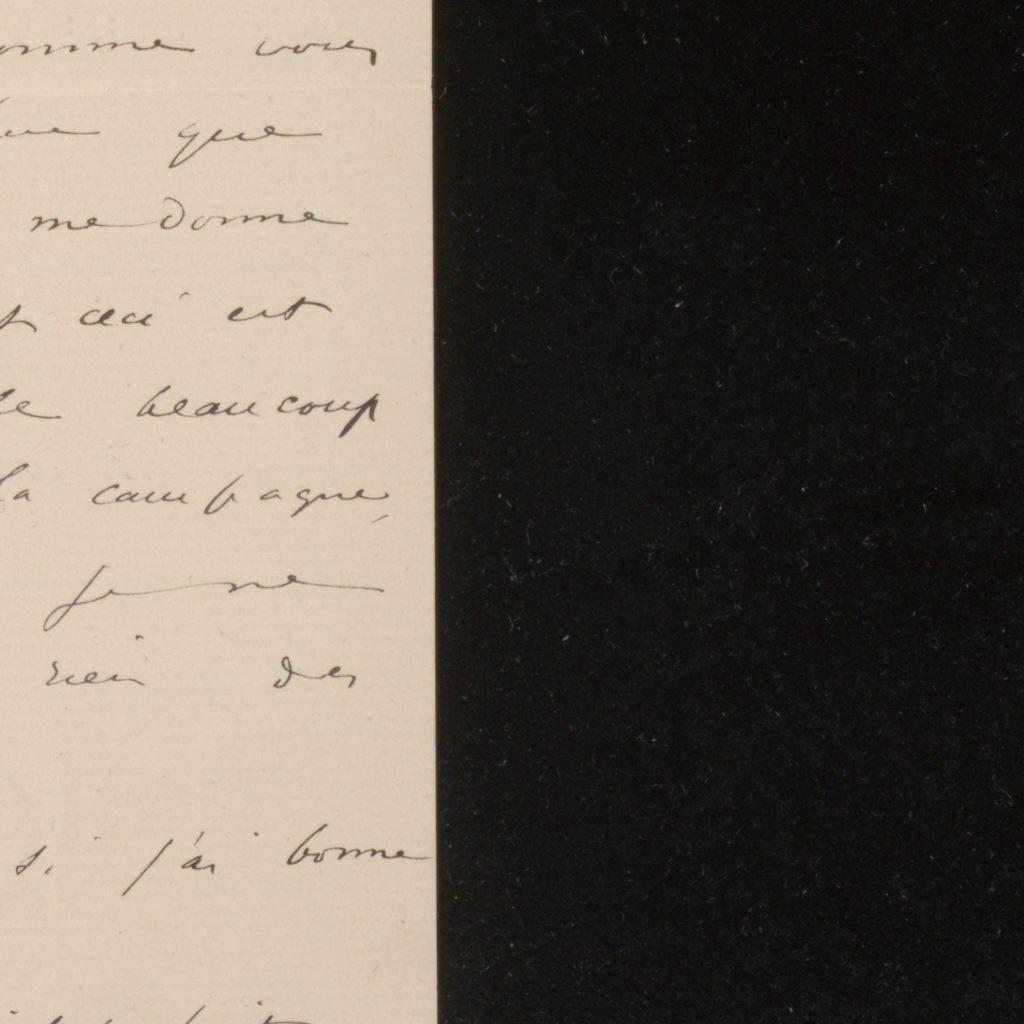 omme vous
que
me donne
ceci est
beaucoup
la campagne,
je ne
rien des
si j'ai bonne